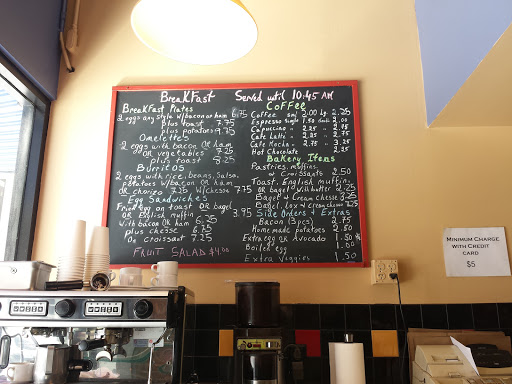 BreakFast Served until 10:45 AM
BreakFast Plates
2 eggs any style w/bacon or ham 6.75
plus toast 7.75
plus potatoes 9.75
Omelettes
2 eggs with bacon OR ham
OR vegetables 7.25
plus toast 8.25
Burritos
2 eggs with rice, beans, Salsa,
potatoes w/bacon OR ham
OR chorizo 7.25 w/cheese 7.75
Egg Sandwiches
Fried egg on toast OR bagel
OR English muffin 3.75
w/ bacon OR ham 6.25
plus cheese 6.75
On croissant 7.25
FRUIT SALAD $4.00
Coffee
Coffee sml 2.00 lg 2.25
Espresso single 1.50 2.00
Cappuccino 2.25 2.75
Cafe Latte 2.25 2.75
Cafe Mocha 2.75
Hot Chocolate 2.25
Bakery Items
Pastries, muffins,
& Croissants 2.50
Toast, English muffins,
OR bagel with butter 2.25
Bagel & cream cheese 3.25
Bagel, lox & cream cheese 7.25
Side Orders & Extras
Bacon (3 pcs) 2.75
Home made potatoes 2.50
Extra egg OR Avocado 1.50
Boiled egg 1.00
Extra Veggies 1.50
MINIMUM CHARGE
WITH CREDIT
CARD
$5